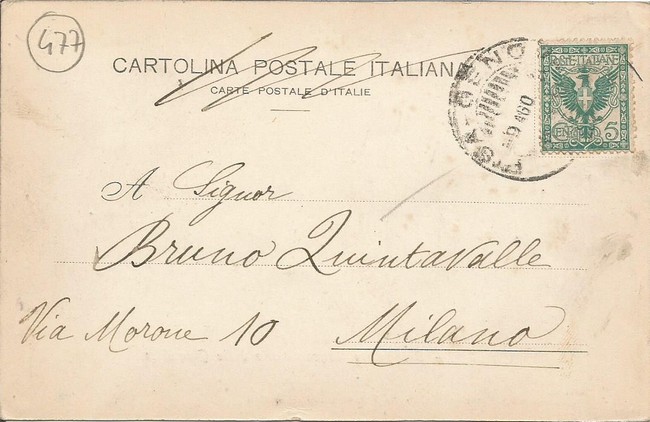 477
CARTOLINA POSTALE ITALIANA
CARTE POSTALE D'ITALIE
POSTE ITALIANE
CENT. 5
A Signor
Bruno Quintavalle
Via Morone 10 Milano